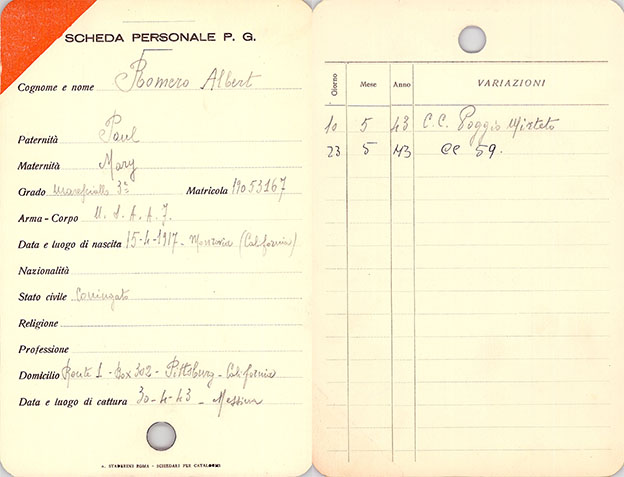 SCHEDA PERSONALE P. G.
Cognome e nome Romero Albert
Paternità Paul
Maternità Mary
Grado Maresciallo 3ª Matricola 19053167
Arma - Corpo U. S. A. A. F.
Data e luogo di nascita 15-4-1917 - Monrovia (California)
Nazionalità
Stato civile Coniugato
Religione
Professione
Domicilio Route 1 - Box 302 - Pittsburg - California
Data e luogo di cattura 30-4-43 - Messina
STADERINI ROMA - SCHEDARI PER CATALOGHI
Giorno Mese Anno VARIAZIONI
10 5 43 C.C. Poggio Mirteto
23 5 43 CC 59.